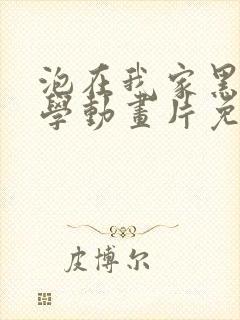 泡在我家黑
學動畫片免
皮博尔